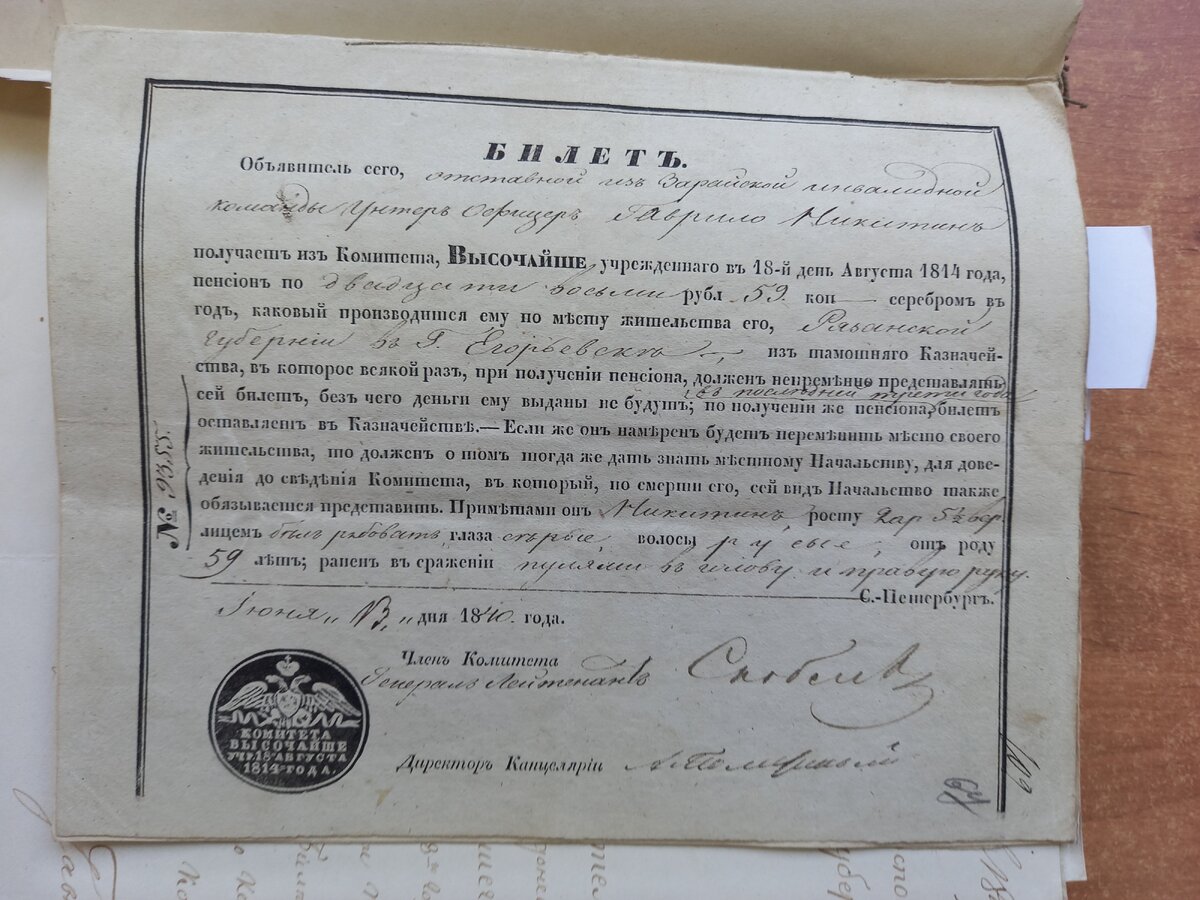 БИЛЕТЪ.
Объявитель сего, отставной изъ Зарайской инвалидной
команды Унтеръ Офицеръ Гаврило Никитинъ
получаетъ изъ Комитета, ВЫСОЧАЙШЕ учрежденнаго въ 18-й день Августа 1814 года,
пенсіонъ по двадцати восьми рубл 59 коп серебромъ въ
годъ, каковый производится ему по мѣсту жительства его, Рязанской
Губерніи въ Г. Егорьевскѣ, изъ тамошняго Казначей-
ства, въ которое всякой разъ, при полученіи пенсіона, долженъ непремѣнно представлять
въ послѣдній трети года
сей билетъ, безъ чего деньги ему выданы не будутъ; по полученіи же пенсіона, билетъ
оставляетъ въ Казначействѣ.—Если же онъ намѣренъ будетъ перемѣнить мѣсто своего
жительства, то долженъ о томъ тогда же дать знать мѣстному Начальству, для дове-
денія до свѣдѣнія Комитета, въ который, по смерти его, сей видъ Начальство также
обязывается представить. Примѣтами онъ Никитинъ, росту 2 ар 5½ вер
лицемъ бѣлъ рябоватъ, глаза сѣрые, волосы русые, отъ роду
59 лѣтъ; раненъ въ сраженіи пулями въ голову и правую руку.
С.-Петербургъ.
Іюня „13„ дня 1840. года.
Членъ Комитета
Генералъ Лейтенантъ Скобелевъ
Директоръ Канцеляріи
КОМИТЕТА
ВЫСОЧАЙШЕ
УЧР. 18 АВГУСТА
1814 ГОДА.
№ 9355.